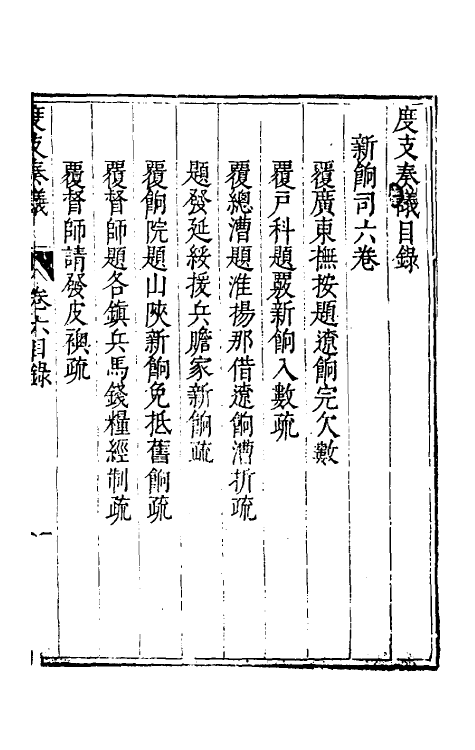 度支奏議目錄
新餉司六卷
覆廣東撫按題遼餉完欠數
覆戶科題覈新餉入數疏
覆總漕題淮揚那借遼餉漕折疏
題發延綏援兵贍家新餉疏
覆餉院題山陝新餉免抵舊餉疏
覆督師題各鎮兵馬錢糧經制疏
覆督師請發皮襖疏
度支奏議 卷六目錄 一